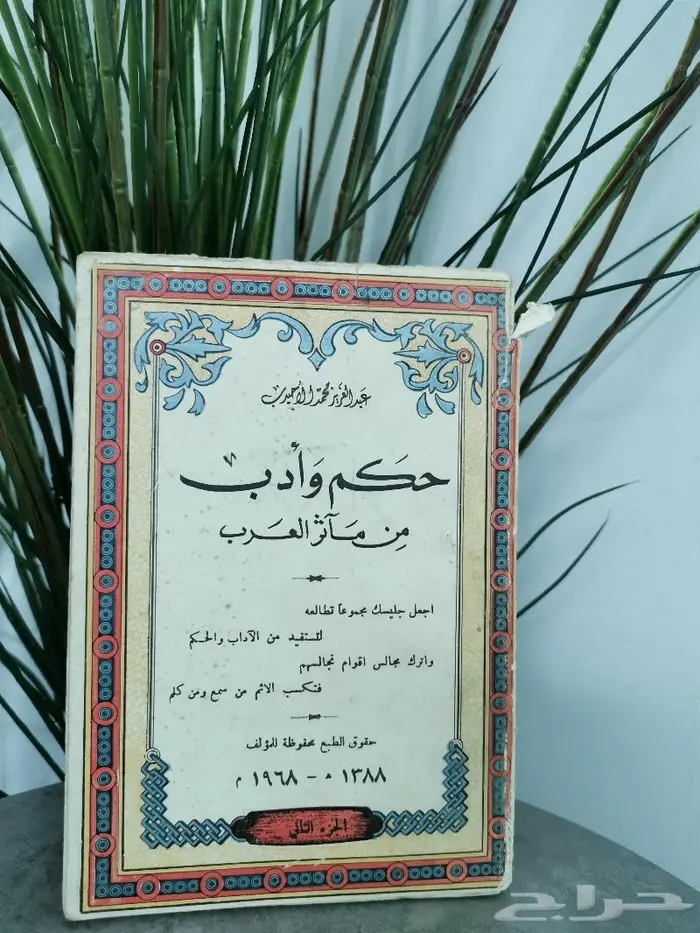 عبد العزيز محمد الأحيدب
حكم وأدب
من مآثر العرب
اجعل جليسك مجموعاً تطالعه
لتستفيد من الآداب والحكم
واترك مجالس اقوام تجالسهم
فتكسب الاثم من سمع ومن كلم
حقوق الطبع محفوظة للمؤلف
١٣٨٨ هـ - ١٩٦٨ م
الجزء الثاني
حراج